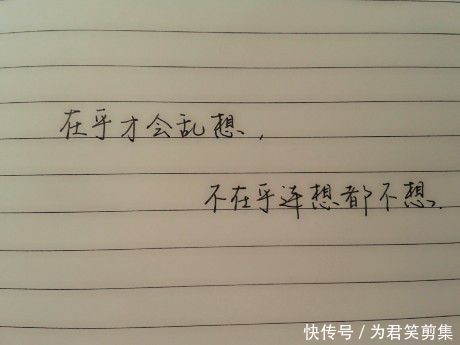 在乎才会乱想，
不在乎连想都不想。
快传号/为君笑剪集